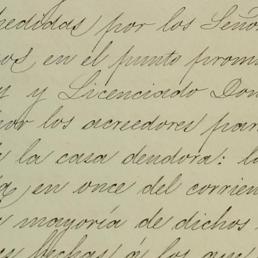 cedidas por los Seño
os en el punto prom
y y Licenciado Don
por los acreedores par
la casa deudora: l
en once del corrien
mayoría de dichos
fechas á los que